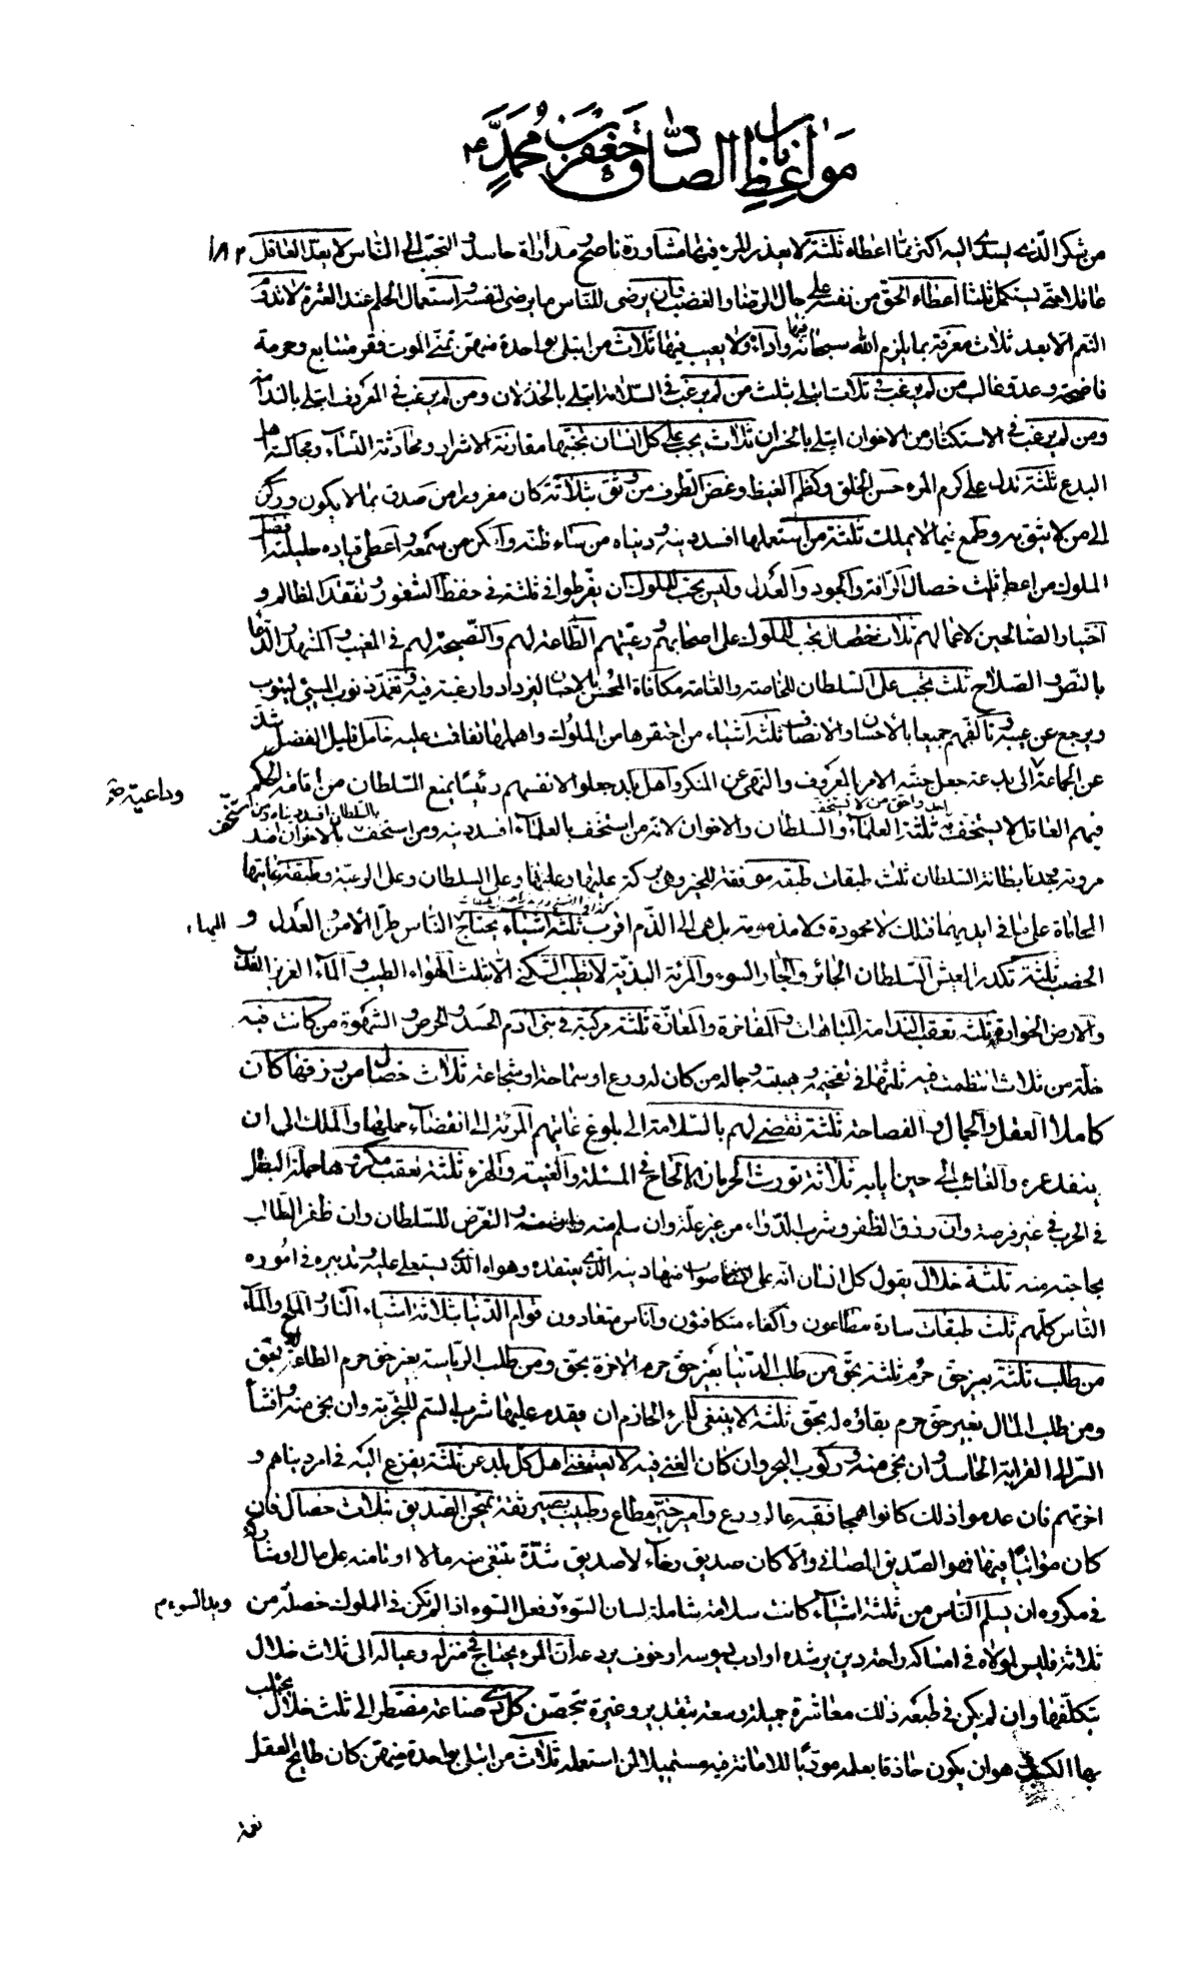 باب
مواعظ الصادق جعفر بن محمد ع
من شكر الذى يسدى اليه اكثر مما اعطاه ثلثة لا يعذر المرء فيها مشاورة ناصح و مداراة حاسد و التحبب الى الناس لا يعد العاقل ١٨٢
عاقلا حتى يستكمل ثلثا اعطاء الحق من نفسه على حال الرضا و الغضب وان يرضى للناس ما يرضى لنفسه و استعمال الحلم عند العثرة لا تدوم
النعم الا بعد ثلاث معرفة بما يلزم الله سبحانه فيها واداء ولا يعيب فيها ثلاث من ابتلى بواحدة منهن تمنى الموت فقر متتابع وحرمة
فاضحة وعدو غالب من لم يرغب فى ثلاث ابتلى بثلث من لم يرغب فى السلامة ابتلى بالخذلان ومن لم يرغب فى المعروف ابتلى بالندامة
ومن لم يرغب فى الاستكثار من الاخوان ابتلى بالخسران ثلاث يجب على كل انسان تجنبها مقارنة الاشرار ومحادثة النساء ومجالسة اهل
البدع ثلثة تدل على كرم المرء حسن الخلق وكظم الغيظ وغض الطرف من وثق بثلاثة كان مغرورا من صدق بما لا يكون وركن
الى من لا يثق به وطمع فيما لا يملك ثلثة من استعملها افسد دينه ودنياه من ساء ظنه وامكن من سمعه واعطى قياده حليلته افضل
الملوك من اعطى ثلث خصال الرافة والجود والعدل وليس يحب للملوك ان يفرطوا فى ثلثة فى حفظ الثغور وتفقد المظالم و
اختيار الصالحين لاعمالهم ثلاث خصال تجب للملوك على اصحابهم ورعيتهم الطاعة لهم والنصيحة لهم فى المغيب والمشهد والدعاء
بالنصر والصلاح ثلث تجب على السلطان للخاصة والعامة مكافاة المحسن بالاحسان ليزدادوا رغبة فيه وتغمد ذنوب المسيئ ليتوب
ويرجع عن عيبه وتالفهم جميعا بالاحسان والانصاف ثلثة اشياء من احتقرها من الملوك واهملها تفاقمت عليه خامل قليل الفضل شذ
عن الجماعة وداعية الى بدعة جعل جنته الامر بالمعروف والنهى عن المنكر واهل بلد جعلوا لانفسهم رئيسا يمنع السلطان من اقامة الحكم
فيهم العاقل لا يستخف باحد واحق من لا يستخف به ثلثة العلماء والسلطان والاخوان لانه من استخف بالعلماء افسد دينه ومن استخف بالسلطان افسد دنياه ومن استخف بالاخوان افسد
مروته وجدنا بطانة السلطان ثلث طبقات طبقة موفقة للخير وهى بركة عليها وعلى السلطان وعلى الرعية وطبقة غايتها
المحاماة على ما فى ايديها فتلك لا محمودة ولا مذمومة بل هى الى الذم اقرب ثلثة اشياء يحتاج الناس طرا اليها الامن والعدل و
الخصب ثلثة تكدر العيش السلطان الجائر والجار السوء والمرئة البذية لا تطيب السكنى الا بثلث الهواء الطيب والماء الغزير العذب
والارض الخوارة ثلثة تعقب الندامة المباهات والمفاخرة والمعازة ثلثة مركبة فى بنى ادم الحسد والحرص والشهوة من كانت فيه
خلة من ثلاث انتظمت فيه ثلثها فى تفخيمه وهيبته وجماله من كان له ورع او سماحة او شجاعة ثلاث خصال من رزقها كان
كاملا العقل والجمال والفصاحة ثلثة تقضى لهم بالسلامة الى بلوغ غايتهم المرئة الى انقضاء حملها والملك الى ان
ينفد عمره والغائب الى حين ايابه ثلاثة تورث الحرمان الالحاح فى المسئلة والغيبة والهزء ثلثة تعقب مكروها حملة البطل
فى الحرب فى غير فرصة وان رزق الظفر وشرب الدواء من غير علة وان سلم منه والتعرض للسلطان وان ظفر الطالب
بحاجته منه ثلثة خلال يقول كل انسان انه على صواب منها دينه الذى يعتقده وهواه الذى يستعلى عليه وتدبيره فى اموره
الناس كلهم ثلث طبقات سادة مطاعون واكفاء متكافئون واناس متعادون قوام الدنيا بثلاثة اشياء النار والملح والماء
من طلب ثلثة بغير حق حرم ثلثة بحق من طلب الدنيا بغير حق حرم الاخرة بحق ومن طلب الرياسة بغير حق حرم الطاعة له بحق
ومن طلب المال بغير حق حرم بقاؤه له بحق ثلثة لا ينبغى للمرء الحازم ان يقدم عليها شرب السم للتجربة وان نجى منه وافشاء
السر الى القرابة الحاسد وان نجى منه وركوب البحر وان كان الغنى فيه لا يستغنى اهل كل بلد عن ثلثة يفزع اليه فى امر دنياهم و
اخرتهم فان عدموا ذلك كانوا همجا فقيه عالم ورع وامير خير مطاع وطبيب بصير ثقة يمتحن الصديق بثلاث خصال فان
كان مؤاتيا فيها فهو الصديق المصافى والا كان صديق رخاء لا صديق شدة تبتغى منه مالا او تامنه على مال او مشاركة
فى مكروه ان يسلم الناس من ثلثة اشياء كانت سلامة شاملة لسان السوء وفعل السوء اذا لم تكن فى الملوك خصلة من
ثلاثة فليس لولاه فى امساكه راحة دين يرشده او ادب يسوسه او خوف يردعه ان المرء يحتاج فى منزله وعياله الى ثلاث خلال
يتكلفها وان لم يكن فى طبعه ذلك معاشرة جميلة وسعة بتقدير وغيرة بتحصن كل ذى صناعة مضطر الى ثلث خلال يجتلب
بها الكسب وهو ان يكون حاذقا بعلمه مؤديا للامانة فيه مستميلا لمن استعمله ثلاث من ابتلى بواحدة منهن كان طايح العقل
وداعية
اليها
ويد السوء م
نعمة